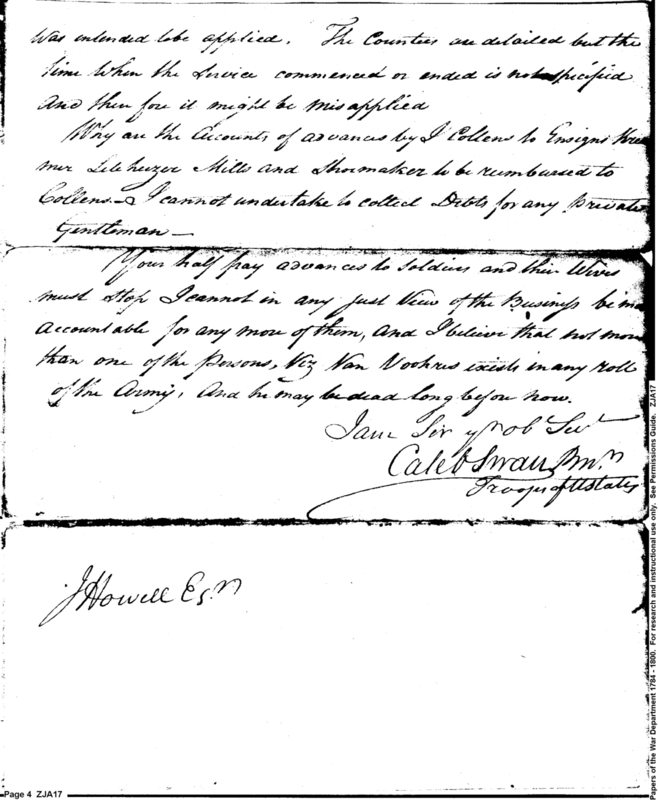 was intended to be applied. The Counties are detailed but the
time when the Service commenced or ended is not specified
And therefore it might be misapplied
Why are the Accounts of advances by J Collens to Ensigns
mer Mills and Shoemaker to be reimbursed to
Collens I cannot undertake to collect Debts for any private
Gentleman —
Your half pay advances to Soldiers and their Wives
must Stop I cannot in any just View of the Business be
accountable for any more of them, and I believe that not more
than one of the persons, Viz Van Voohres exists in any roll
of the Army, And he may be dead long before now.
I am Sir yr ob Servt
Caleb Swan P Mr
Troops of U States
J Howell Esqr
Page 4 ZJA17
Papers of the War Department 1784 - 1800. For research and instructional use only. See Permissions Guide. ZJA17